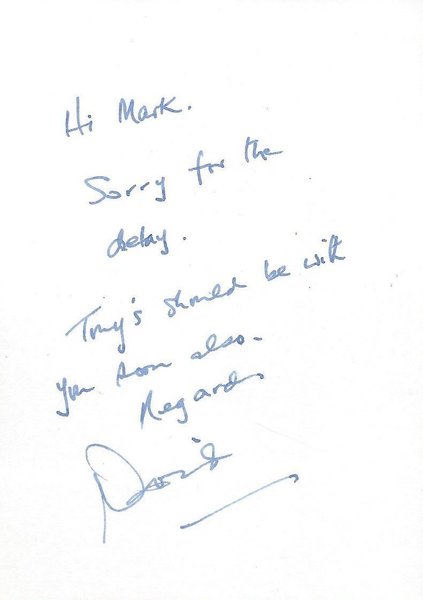 Hi Mark.
Sorry for the
delay.
Tony's should be with
you soon also.
Regards
David